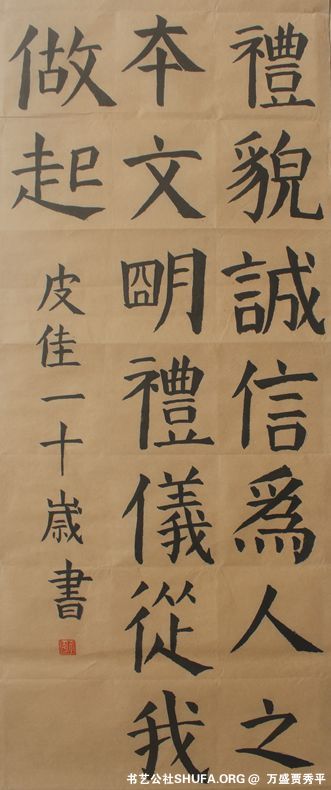 禮貌誠信爲人之
夲文明禮儀從我
做起
皮佳一十歲書
书艺公社SHUFA.ORG @ 万盛贾秀平